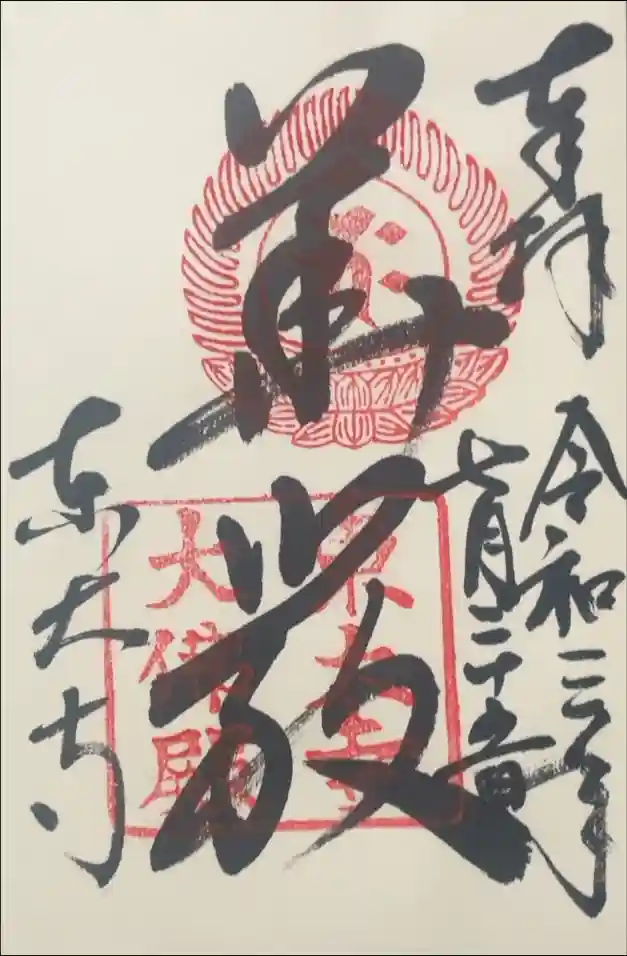 奉拝
令和三年
七月二十五日
華厳
東大寺
東大寺
大佛殿